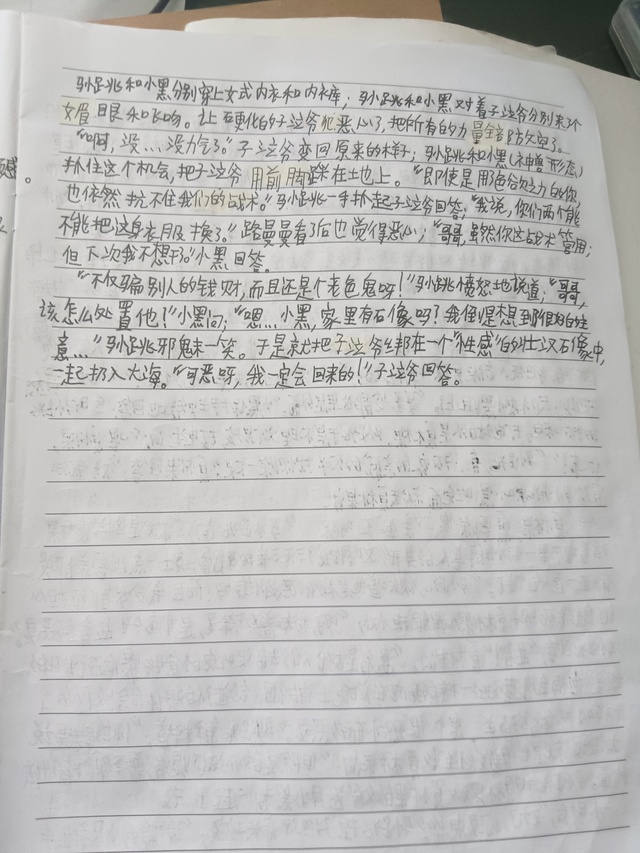 孙跳和小黑分别穿上女式内衣和内衣库；孙跳和小黑对着子泣爷分别来3个
媚眼和飞吻。让硬化的子泣爷犯恶心了，把所有的力量全部防欠空了。
“啊，没…没力气了。”子泣爷变回原来的样子；孙跳和小黑（神兽形态）
抓住这个机会，把子泣爷用前脚踩在土地上。“即使是用色给力的你，
也依然抗不住我们的战术。”孙跳一手抓起子泣爷回答；“我说，你们两个能
不能把这身衣服换了。”路曼曼看了后也觉得恶心；“哥哥，虽然你这战术管用；
但下次我不想干了”小黑回答。
“不仅骗别人的钱财，而且还是个老色鬼呀！”孙跳愤怒地说道；“哥哥，
该怎么处置他？”小黑问；“嗯…小黑，家里有石像吗？我倒是想到很好的主
意…”孙跳邪魅一笑。于是就把子泣爷绑在一个“性感”的壮汉石像中，
一起扔入大海。“可恶呀，我一定会回来的！”子泣爷回答。
感。